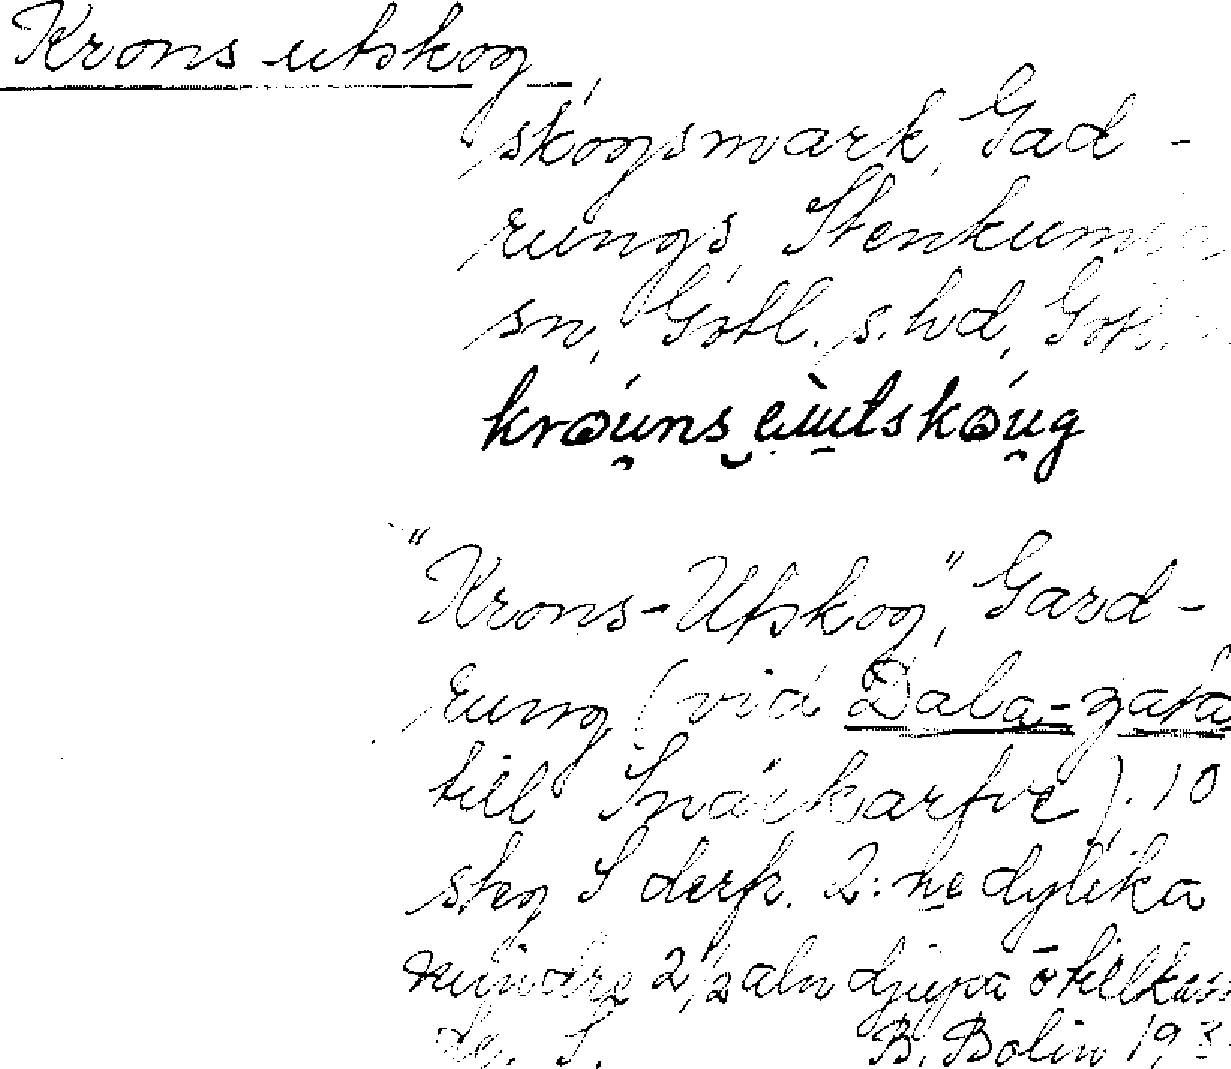 Krons utskog,
skogsmark, Gad-
rungs, Stenkumla
sn, Gotl. s. hd, Gotl.
króuns èutskóug
"Krons-Utskog," Gard-
rung (vid Dala-gata
till Snäckarfve). 10
steg S derfr. 2:ne dylika
mindre 2 1/2 aln djupa ö
de. S. B. Bolin 193